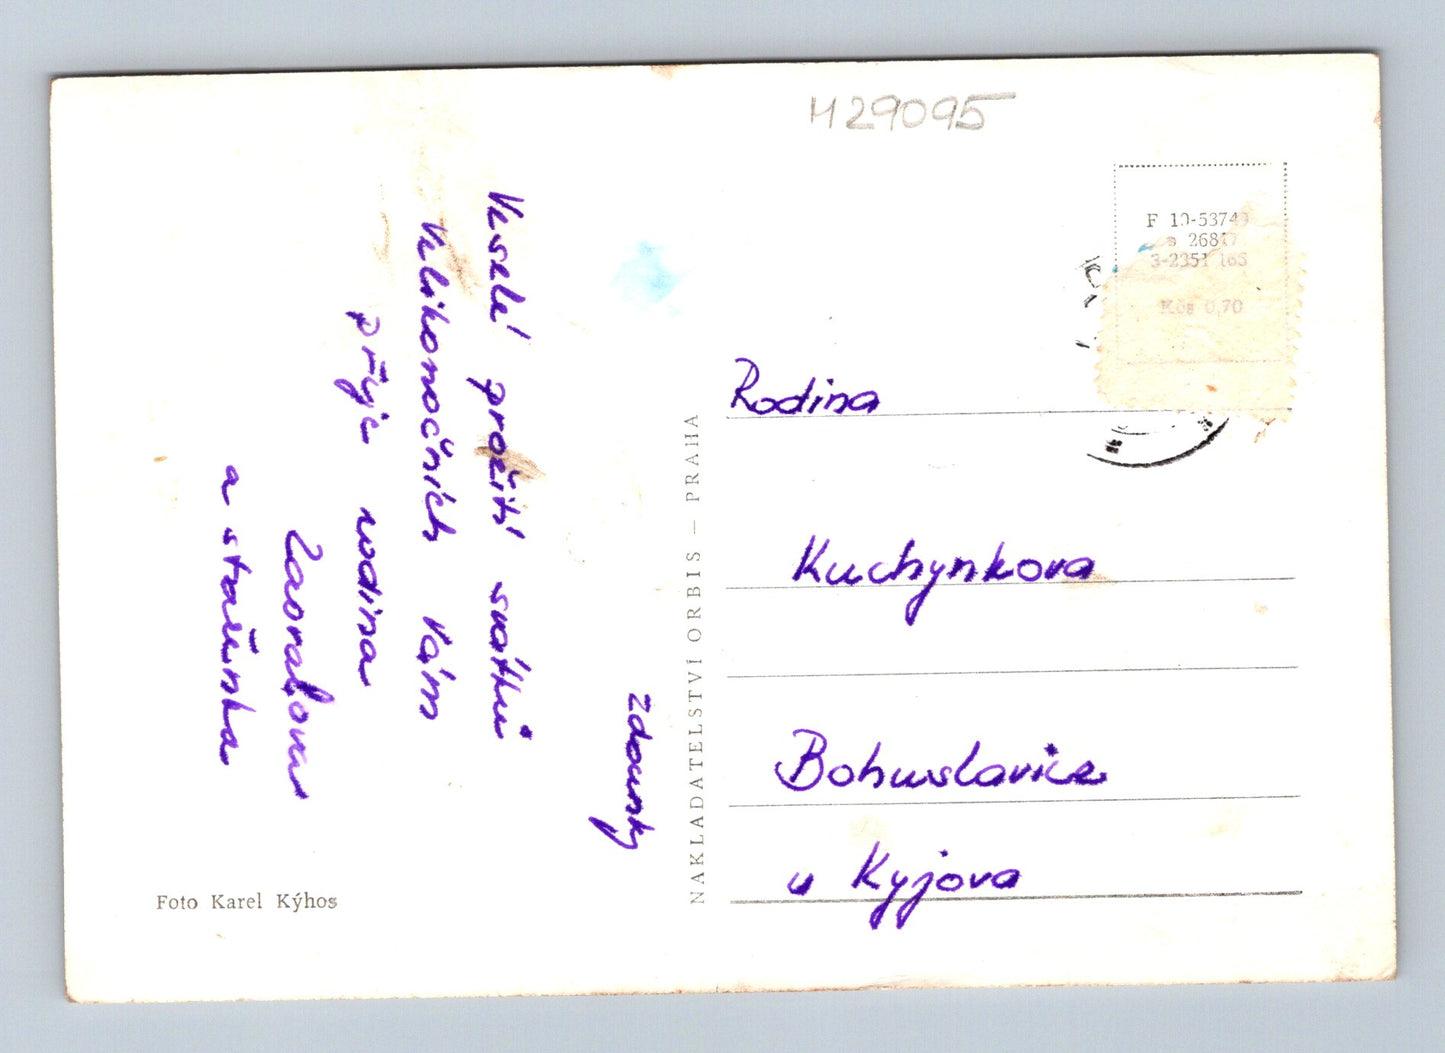 H29095
Veselé prožití svátků
Velikonočních Vám
přeje rodina
Zaoralova
a stařinka
Zdounky
NAKLADATELSTVÍ ORBIS — PRAHA
Foto Karel Kýhos
F 10-53749
26817
3-2351 165
Kčs 0,70
Rodina
Kuchynkova
Bohuslavice
u Kyjova